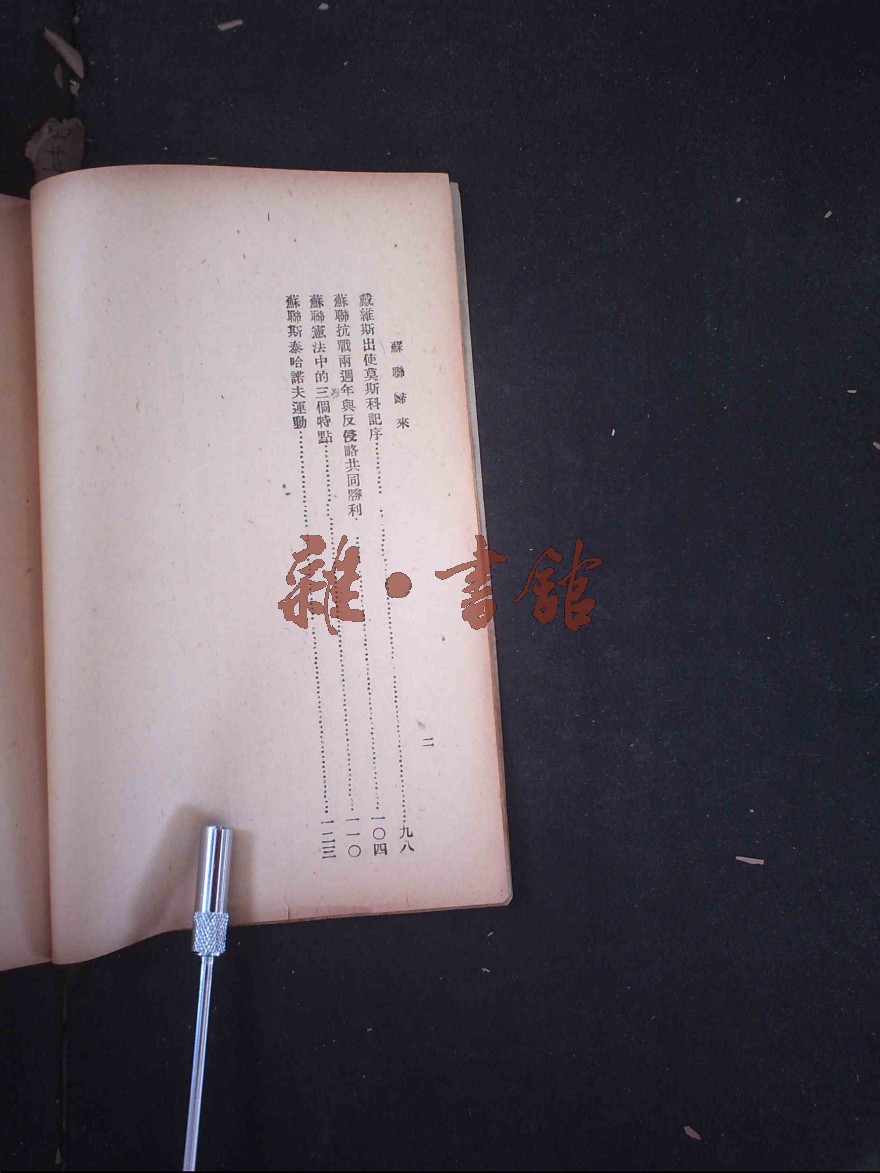 蘇聯歸來
二
戴維斯出使莫斯科記序……九八
蘇聯抗戰兩週年與反侵略共同勝利……一〇四
蘇聯憲法中的三個特點……一一〇
蘇聯斯泰哈諾夫運動……一二三
雜·書館